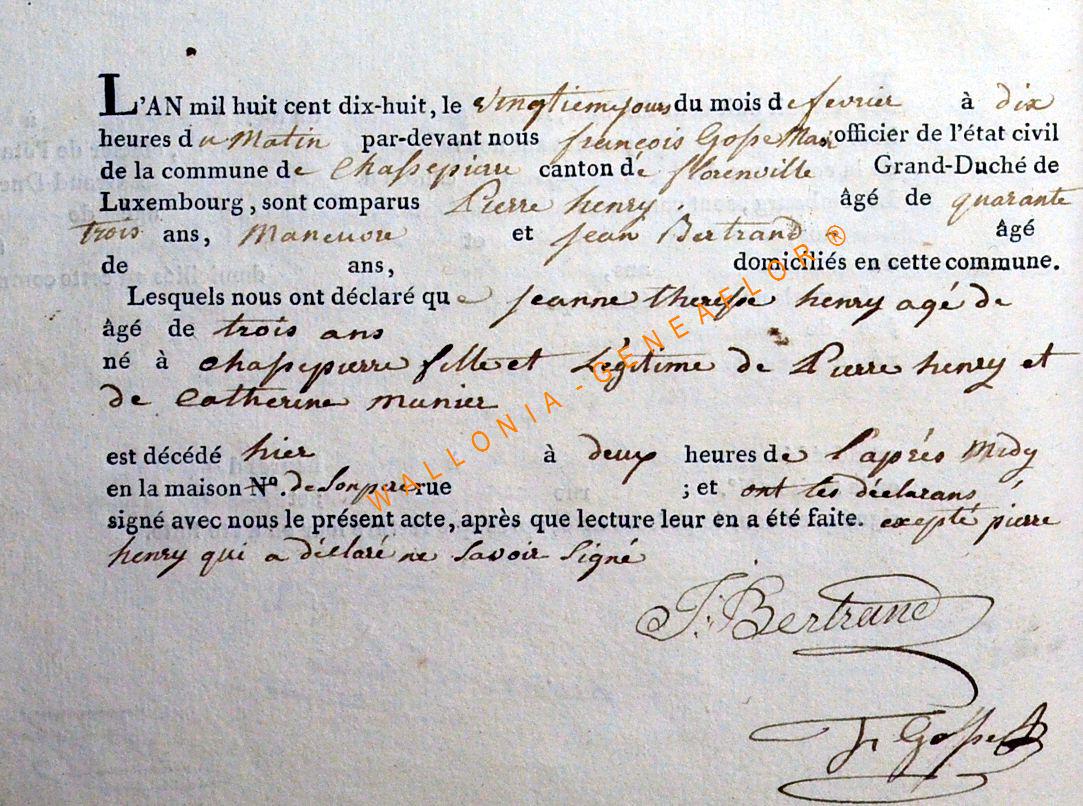 L'AN mil huit cent dix-huit, le vingtieme jours du mois de fevrier à dix
heures du Matin par-devant nous françois Gosse Mair officier de l'état civil
de la commune de Chassepierre canton de florenville Grand-Duché de
Luxembourg, sont comparus Pierre henry âgé de quarante
trois ans, Maneuvre et jean Bertrand âgé
de ans, domiciliés en cette commune.
Lesquels nous ont déclaré que jeanne therese henry agé de
âgé de trois ans
né à chassepierre fille et Légitime de Pierre henry et
de Catherine munier
est décédé hier à deux heures de l'aprés Midy
en la maison Nº. de son pere rue ; et ont les déclarans
signé avec nous le présent acte, après que lecture leur en a été faite. excepté pierre
henry qui a déclaré ne savoir signé
J: Bertrand
f Gosse
WALLONIA - GENEAFLOR ®